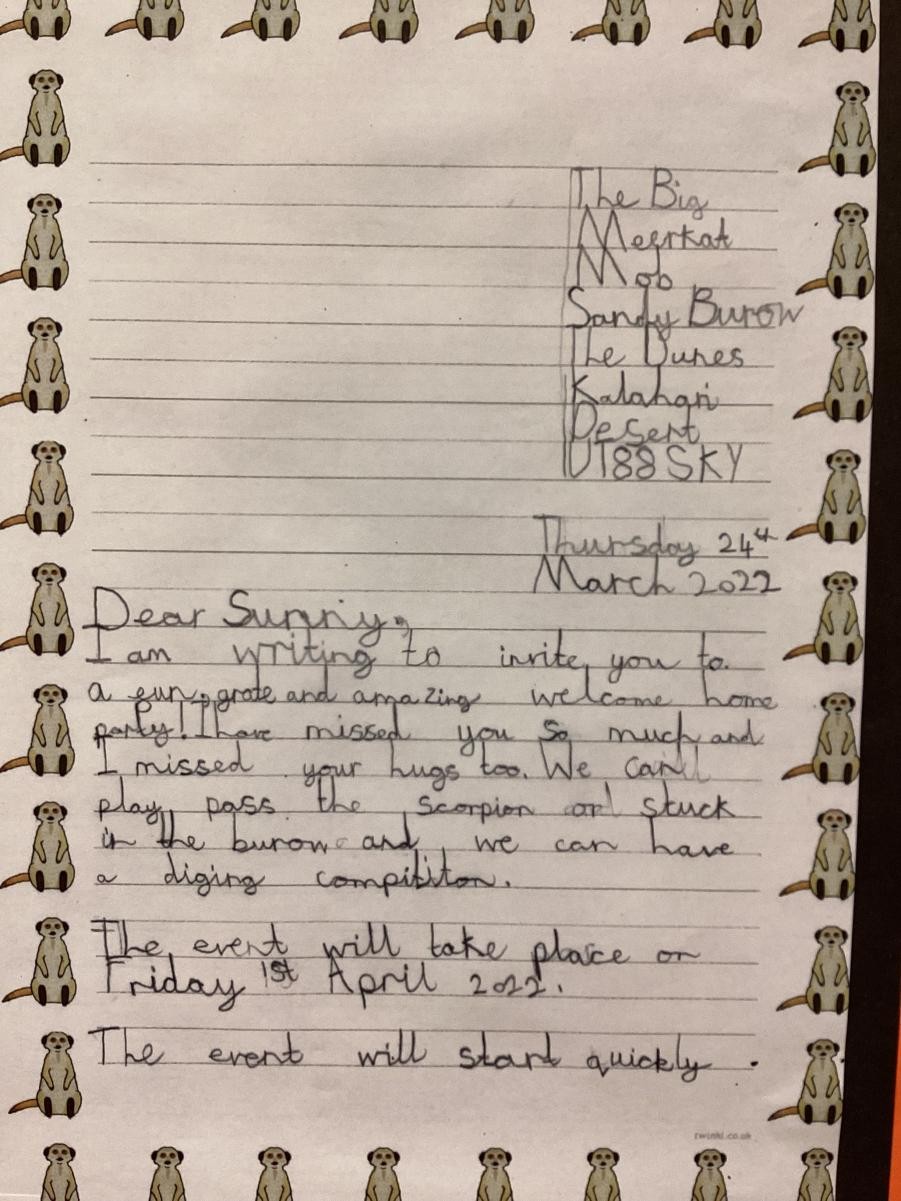 The Big
Meerkat
Mob
Sandy Burow
The Dunes
Kalahari
Desert
UT88 SKY
Thursday 24th
March 2022
Dear Sunny,
I am writing to invite you to
a fun, grate and amazing welcome home
party! I have missed you so much and
I missed your hugs too. We can
play pass the scorpion or stuck
in the burow and we can have
a diging compititon.
The event will take place on
Friday 1st April 2022.
The event will start quickly.
twinkl.co.uk